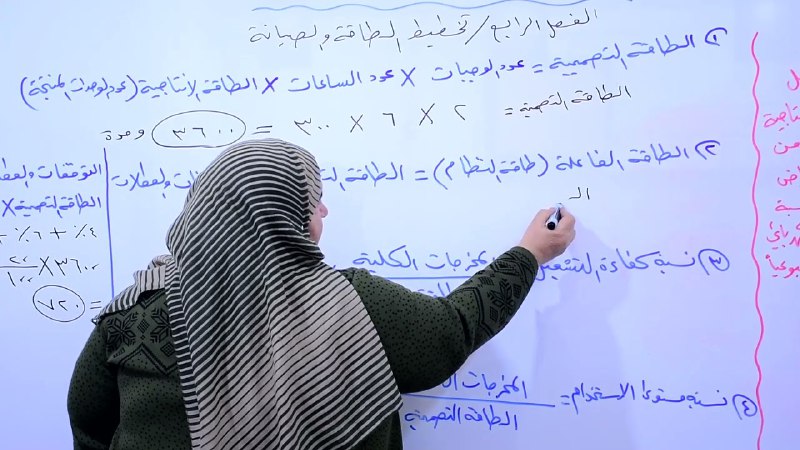 الفصل الرابع / تخطيط الطاقة والصيانة
١) الطاقة التصميمية = عدد الوجبات × عدد الساعات × الطاقة الانتاجية (عدد الوحدات المنتجة)
الطاقة التصميمية = ٢ × ٦ × ٣٠٠ = ٣٦٠٠ وحدة
٢) الطاقة الفاعلة (طاقة النظام) = الطاقة الت
والعطلات
الـ
٣) نسبة كفاءة التشغيل
المخرجات الكلية
٤) نسبة مستوى الاستخدام =
المخرجات
الطاقة التصميمية
التوقفات والعط
الطاقة التصميمية ×
٤٪ + ٦٪ +
٣٦٠٠ × ٢٠/١٠٠
= ٧٢٠